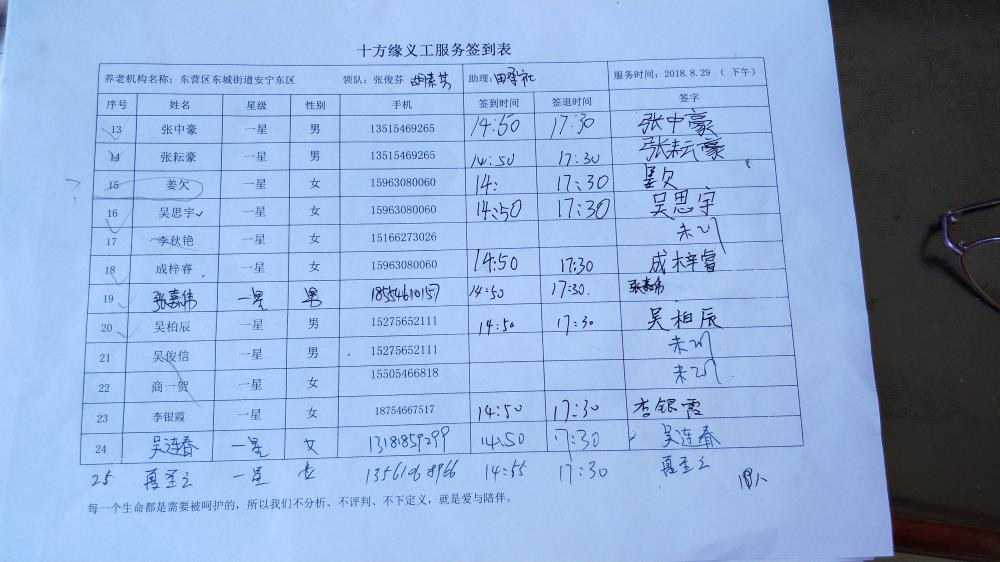 十方缘义工服务签到表
养老机构名称：东营区东城街道安宁东区 领队：张俊芬 胡素其 助理： 服务时间：2018.8.29 （ 下午）
序号 姓名 星级 性别 手机 签到时间 签退时间 签字
13 张中豪 一星 男 13515469265 14:50 17:30 张中豪
14 张耘豪 一星 男 13515469265 14:50 17:30 张耘豪
15 姜欠 一星 女 15963080060 14: 17:30 姜欠
16 吴思宇 一星 女 15963080060 14:50 17:30 吴思宇
17 李秋艳 一星 女 15166273026 未到
18 成梓睿 一星 女 15963080060 14:50 17:30 成梓睿
19 张嘉伟 一星 男 18554610157 14:50 17:30. 张嘉伟
20 吴柏辰 一星 男 15275652111 14:50 17:30 吴柏辰
21 吴俊信 一星 男 15275652111 未到
22 商一贺 一星 女 15505466818 未到
23 李银霞 一星 女 18754667517 14:50 17:30 李银霞
24 吴连春 一星 女 13181859299 14:50 17:30 吴连春
25 一星 女 13561068966 14:55 17:30
每一个生命都是需要被呵护的，所以我们不分析、不评判、不下定义，就是爱与陪伴。